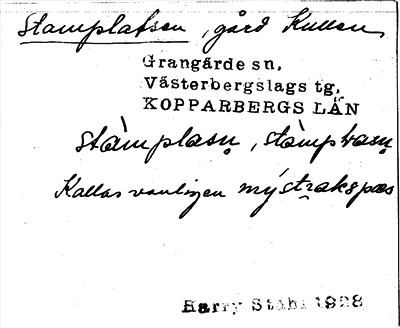 Stamplatsen, gård Kullen
Grangärde sn.
Västerbergslags tg.
KOPPARBERGS LÄN
stàmplasṇ, stàmptrasṇ
Kallas vanligen mýstrakspas
Harry Ståhl 1928